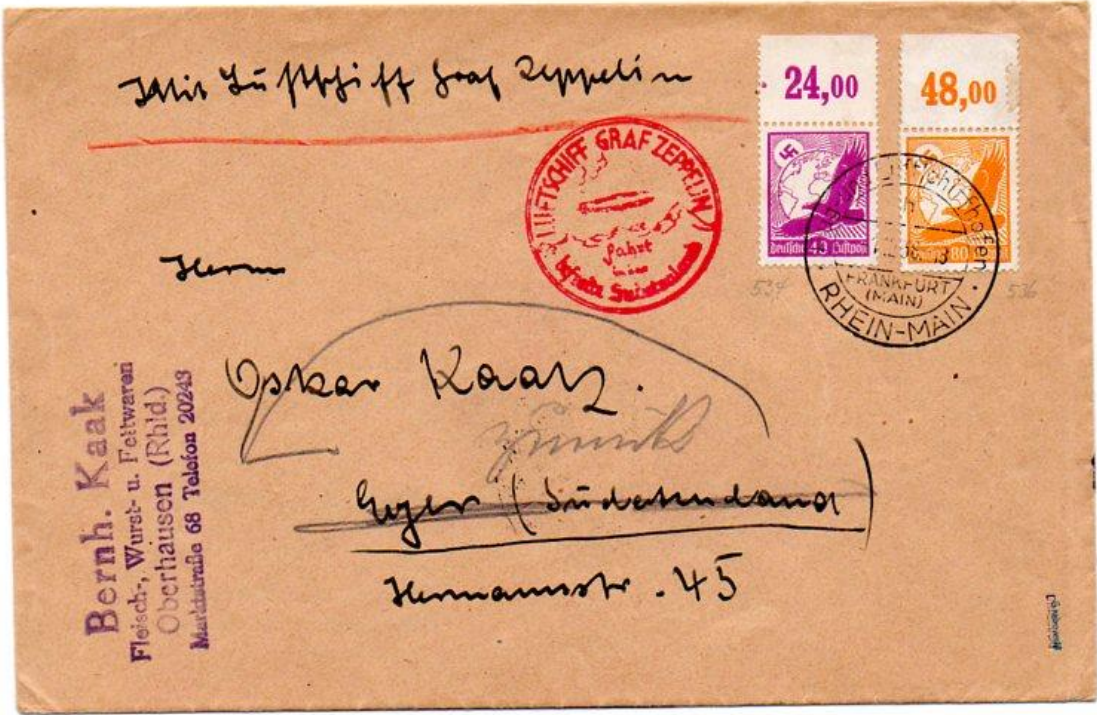 Mit Luftschiff Graf Zeppelin
24,00
48,00
LUFTSCHIFF GRAF ZEPPELIN
Fahrt
in das
befreite Sudetenland
Deutsche 40 Luftpost
80
Flug- und Luftschiffhafen
FRANKFURT
(MAIN)
RHEIN-MAIN
537
536
Herrn
Oskar Kaatz.
zurück
Eger (Sudetenland)
Hermannstr. 45
Bernh. Kaak
Fleisch-, Wurst- u. Fettwaren
Oberhausen (Rhld.)
Marktstraße 68 Telefon 20243